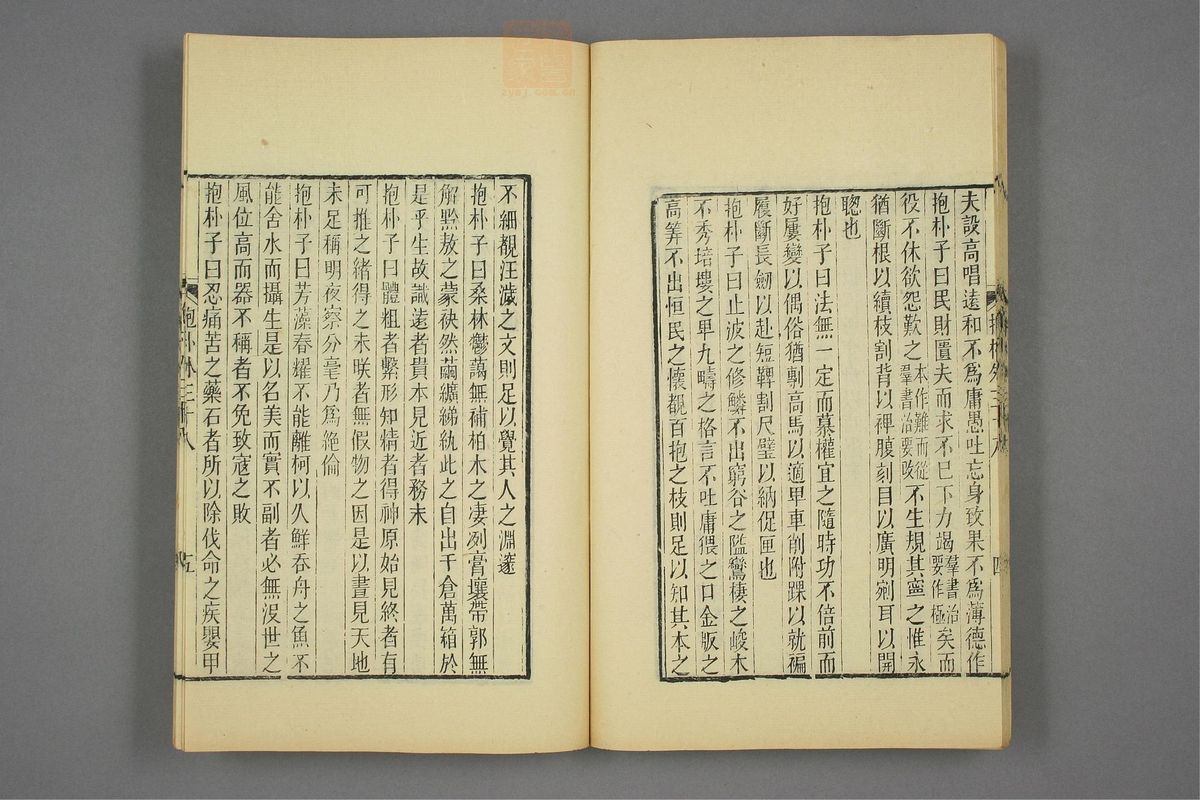 夫設高唱遠和不爲庸愚吐忘身致果不爲薄德作
抱朴子曰民財匱夫而求不已下力竭羣書治要作極矣而
役不休欲怨歎之本作難而從羣書治要改不生規其寧之惟永
猶斷根以續枝割背以裨腹刻目以廣明剜耳以開
聰也
抱朴子曰法無一定而慕權宜之隨時功不倍前而
好屢變以偶俗猶剸高馬以適卑車削附踝以就褊
履斷長劒以赴短鞞割尺璧以納促匣也
抱朴子曰止波之修鱗不出窮谷之隘鸞棲之峻木
不秀培塿之卑九疇之格言不吐庸猥之口金版之
高筭不出恒民之懷覩百抱之枝則足以知其本之
抱朴外三十八
四
不細覩汪濊之文則足以覺其人之淵邃
抱朴子曰桑林鬱藹無補柏木之凄冽膏壤帶郭無
解黔敖之蒙袂然繭纊綈紈此之自出千倉萬箱於
是乎生故識遠者貴本見近者務末
抱朴子曰體粗者繫形知精者得神原始見終者有
可推之緒得之未眹者無假物之因是以晝見天地
未足稱明夜察分毫乃爲絶倫
抱朴子曰芳藻春耀不能離柯以久鮮吞舟之魚不
能舍水而攝生是以名美而實不副者必無沒世之
風位高而器不稱者不免致寇之敗
抱朴子曰忍痛苦之藥石者所以除伐命之疾嬰甲
抱朴外三十八
五